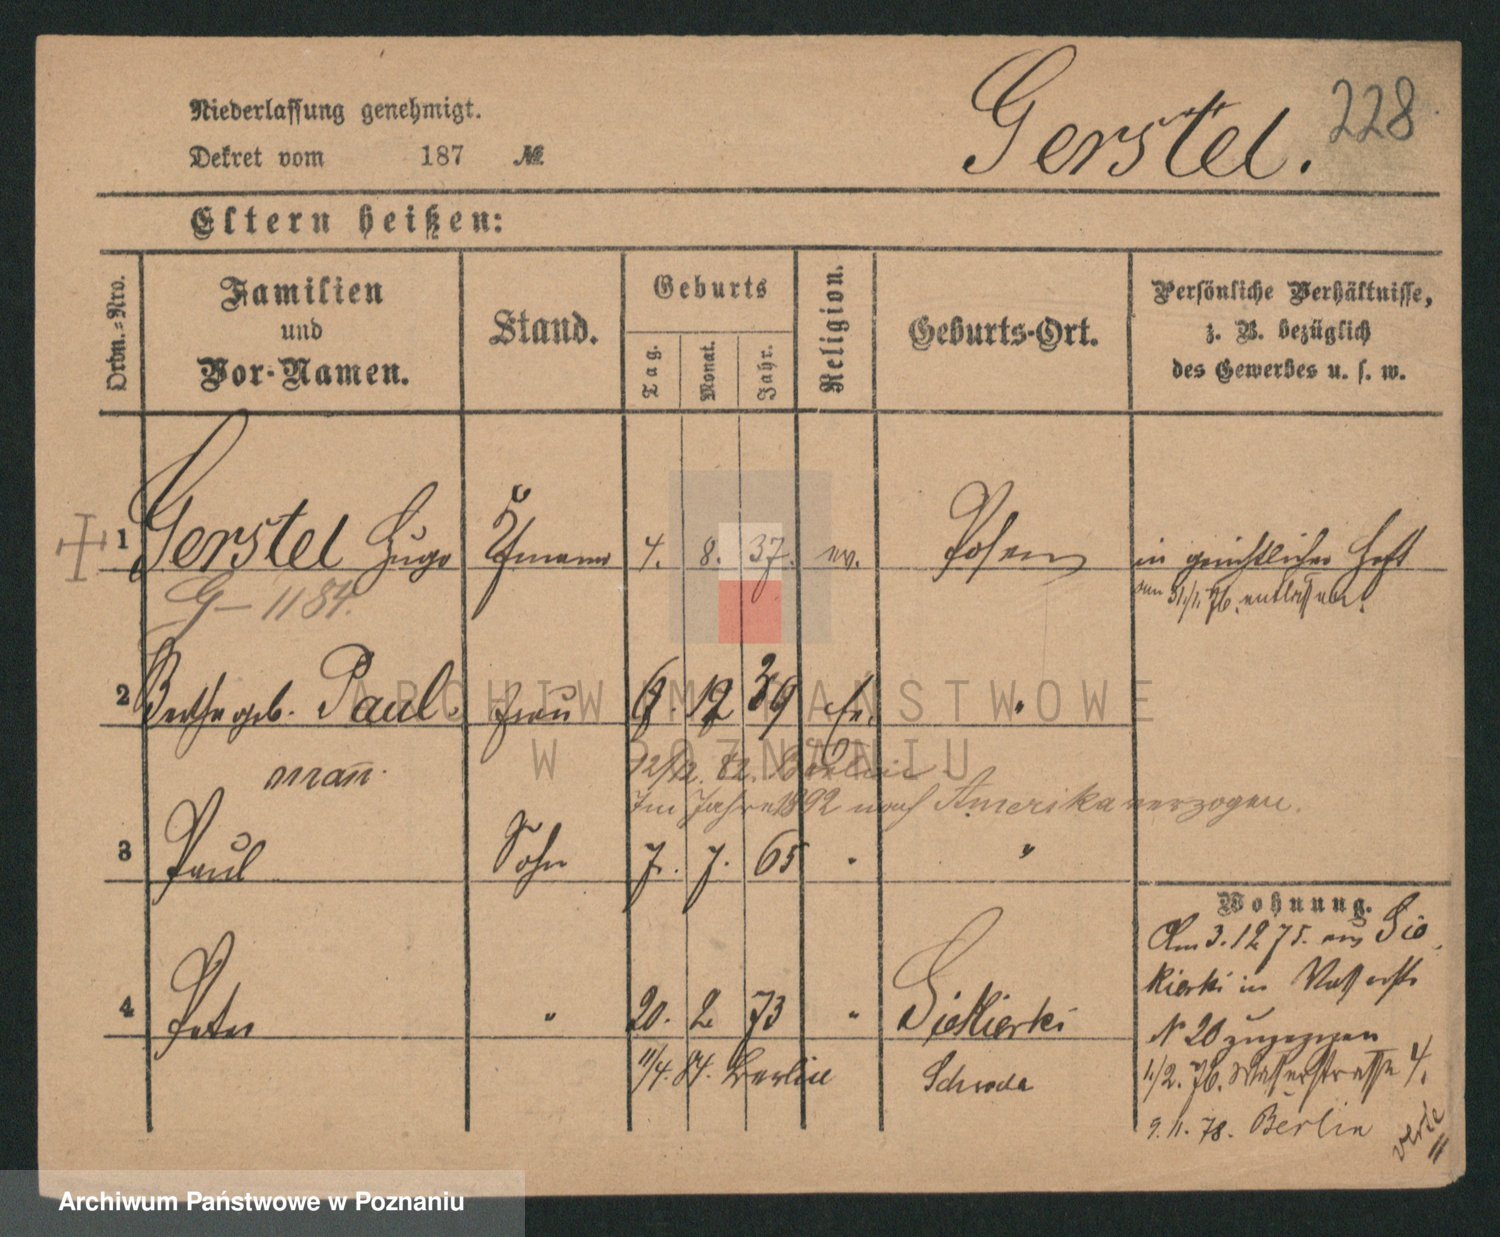 Niederlassung genehmigt.
Dekret vom 187 №
Gerstel. 228
Eltern heißen:
Ordn.=Nro.
Familien
und
Vor-Namen.
Stand.
Geburts
Tag.
Monat.
Jahr.
Religion.
Geburts-Ort.
Persönliche Verhältnisse,
z. B. bezüglich
des Gewerbes u. s. w.
1 Gerstel Hugo Kfmann 4. 8. 37. ev. Posen in gerichtlicher Haft
31/1. 76. entlassen.
G – 1184.
2 Berthe geb. Paul Frau 12 39 "
mann.
12/12. 82. Berlin
Im Jahre 1892 nach Amerika verzogen.
3 Paul Sohn 7. 7. 65 " "
4 Peter " 20. 2. 73 " Siekierki
11/4. 84. Berlin Schroda
Wohnung.
Am 3. 12 75. aus Sie
kierki in
N 20 zugezogen
1./2. 76. Wasserstrasse 4.
9. 11. 78. Berlin
ARCHIWUM PAŃSTWOWE
W POZNANIU
Archiwum Państwowe w Poznaniu